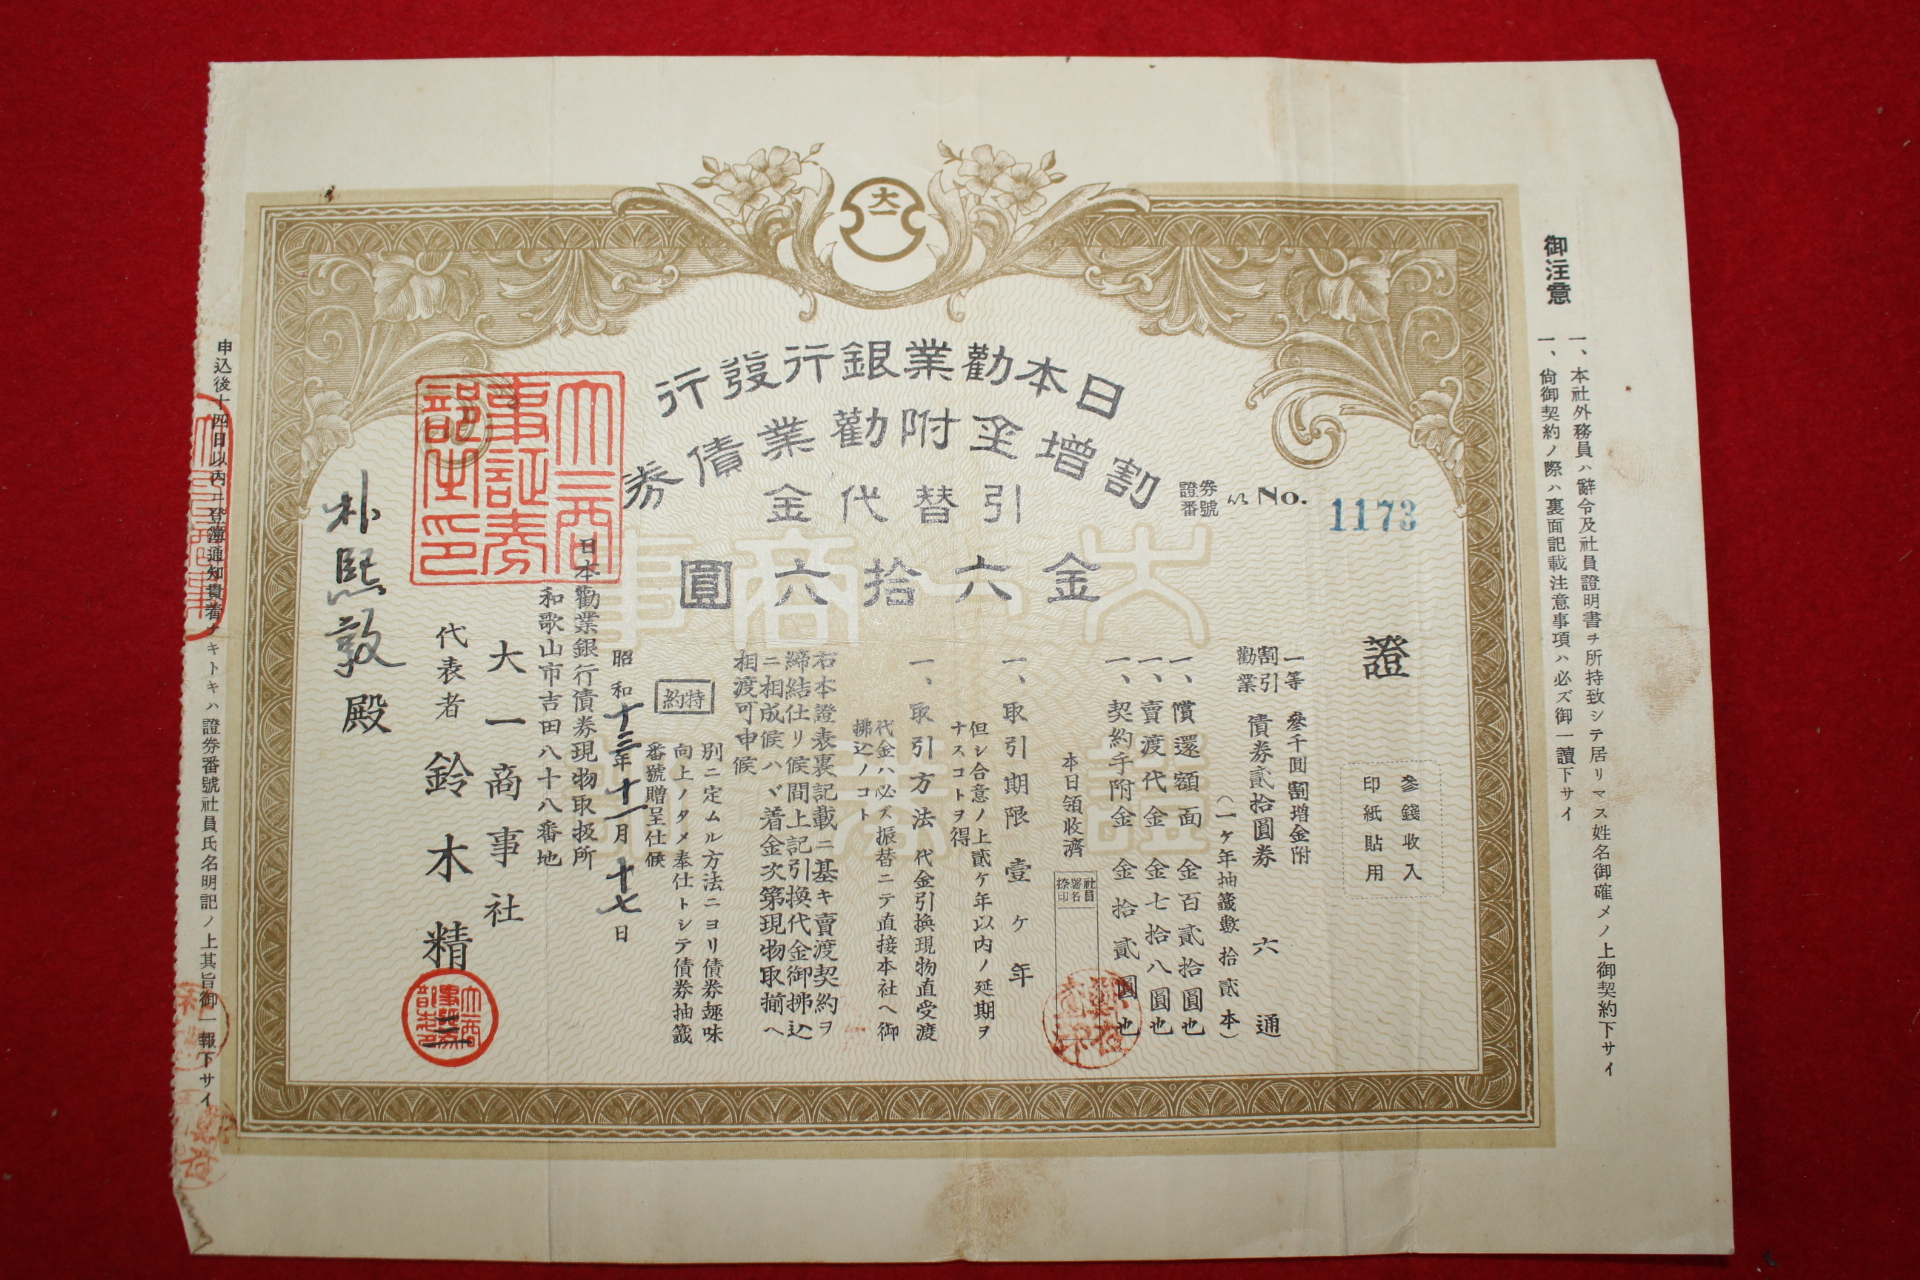 御注意
一、本社外務員ハ辭令及社員證明書ヲ所持致シテ居リマス姓名御確メノ上御契約下サイ
一、尙御契約ノ際ハ裏面記載注意事項ハ必ズ御一讀下サイ
大一
日本勸業銀行發行
割增金附勸業債券
引替代金
金六拾六圓
證券番號 い No. 1173
大一商事
證券部
證
參錢收入
印紙貼用
一等 參千圓 割增金附
割引勸業 債券貳拾圓券 六通
(一ケ年抽籤數 拾貳本)
一、償還額面 金百貳拾圓也
一、賣渡代金 金七拾八圓也
一、契約手附金 金拾貳圓也
本日領收濟
社員署名捺印
一、取引期限 壹ケ年
但シ合意ノ上貳ケ年以內ノ延期ヲ
ナスコトヲ得
一、取引方法 代金引換現物直受渡
代金ハ必ズ振替ニテ直接本社ヘ御
拂込ノコト
右本證表裏記載ニ基キ賣渡契約ヲ
締結仕リ候間上記引換代金御拂込
ニ相成候ハヾ着金次第現物取揃ヘ
相渡可申候
特約
別ニ定ムル方法ニヨリ債券趣味
向上ノタメ奉仕トシテ債券抽籤
番號贈呈仕候
昭和十三年十一月十七日
日本勸業銀行債券現物取扱所
和歌山市吉田八十八番地
大一商事社
代表者 鈴木精二
朴熙敦殿
大一商事証券部之印
申込後十四日以內ニ登簿通知貴着ナキトキハ證券番號社員氏名明記ノ上其旨御一報下サイ